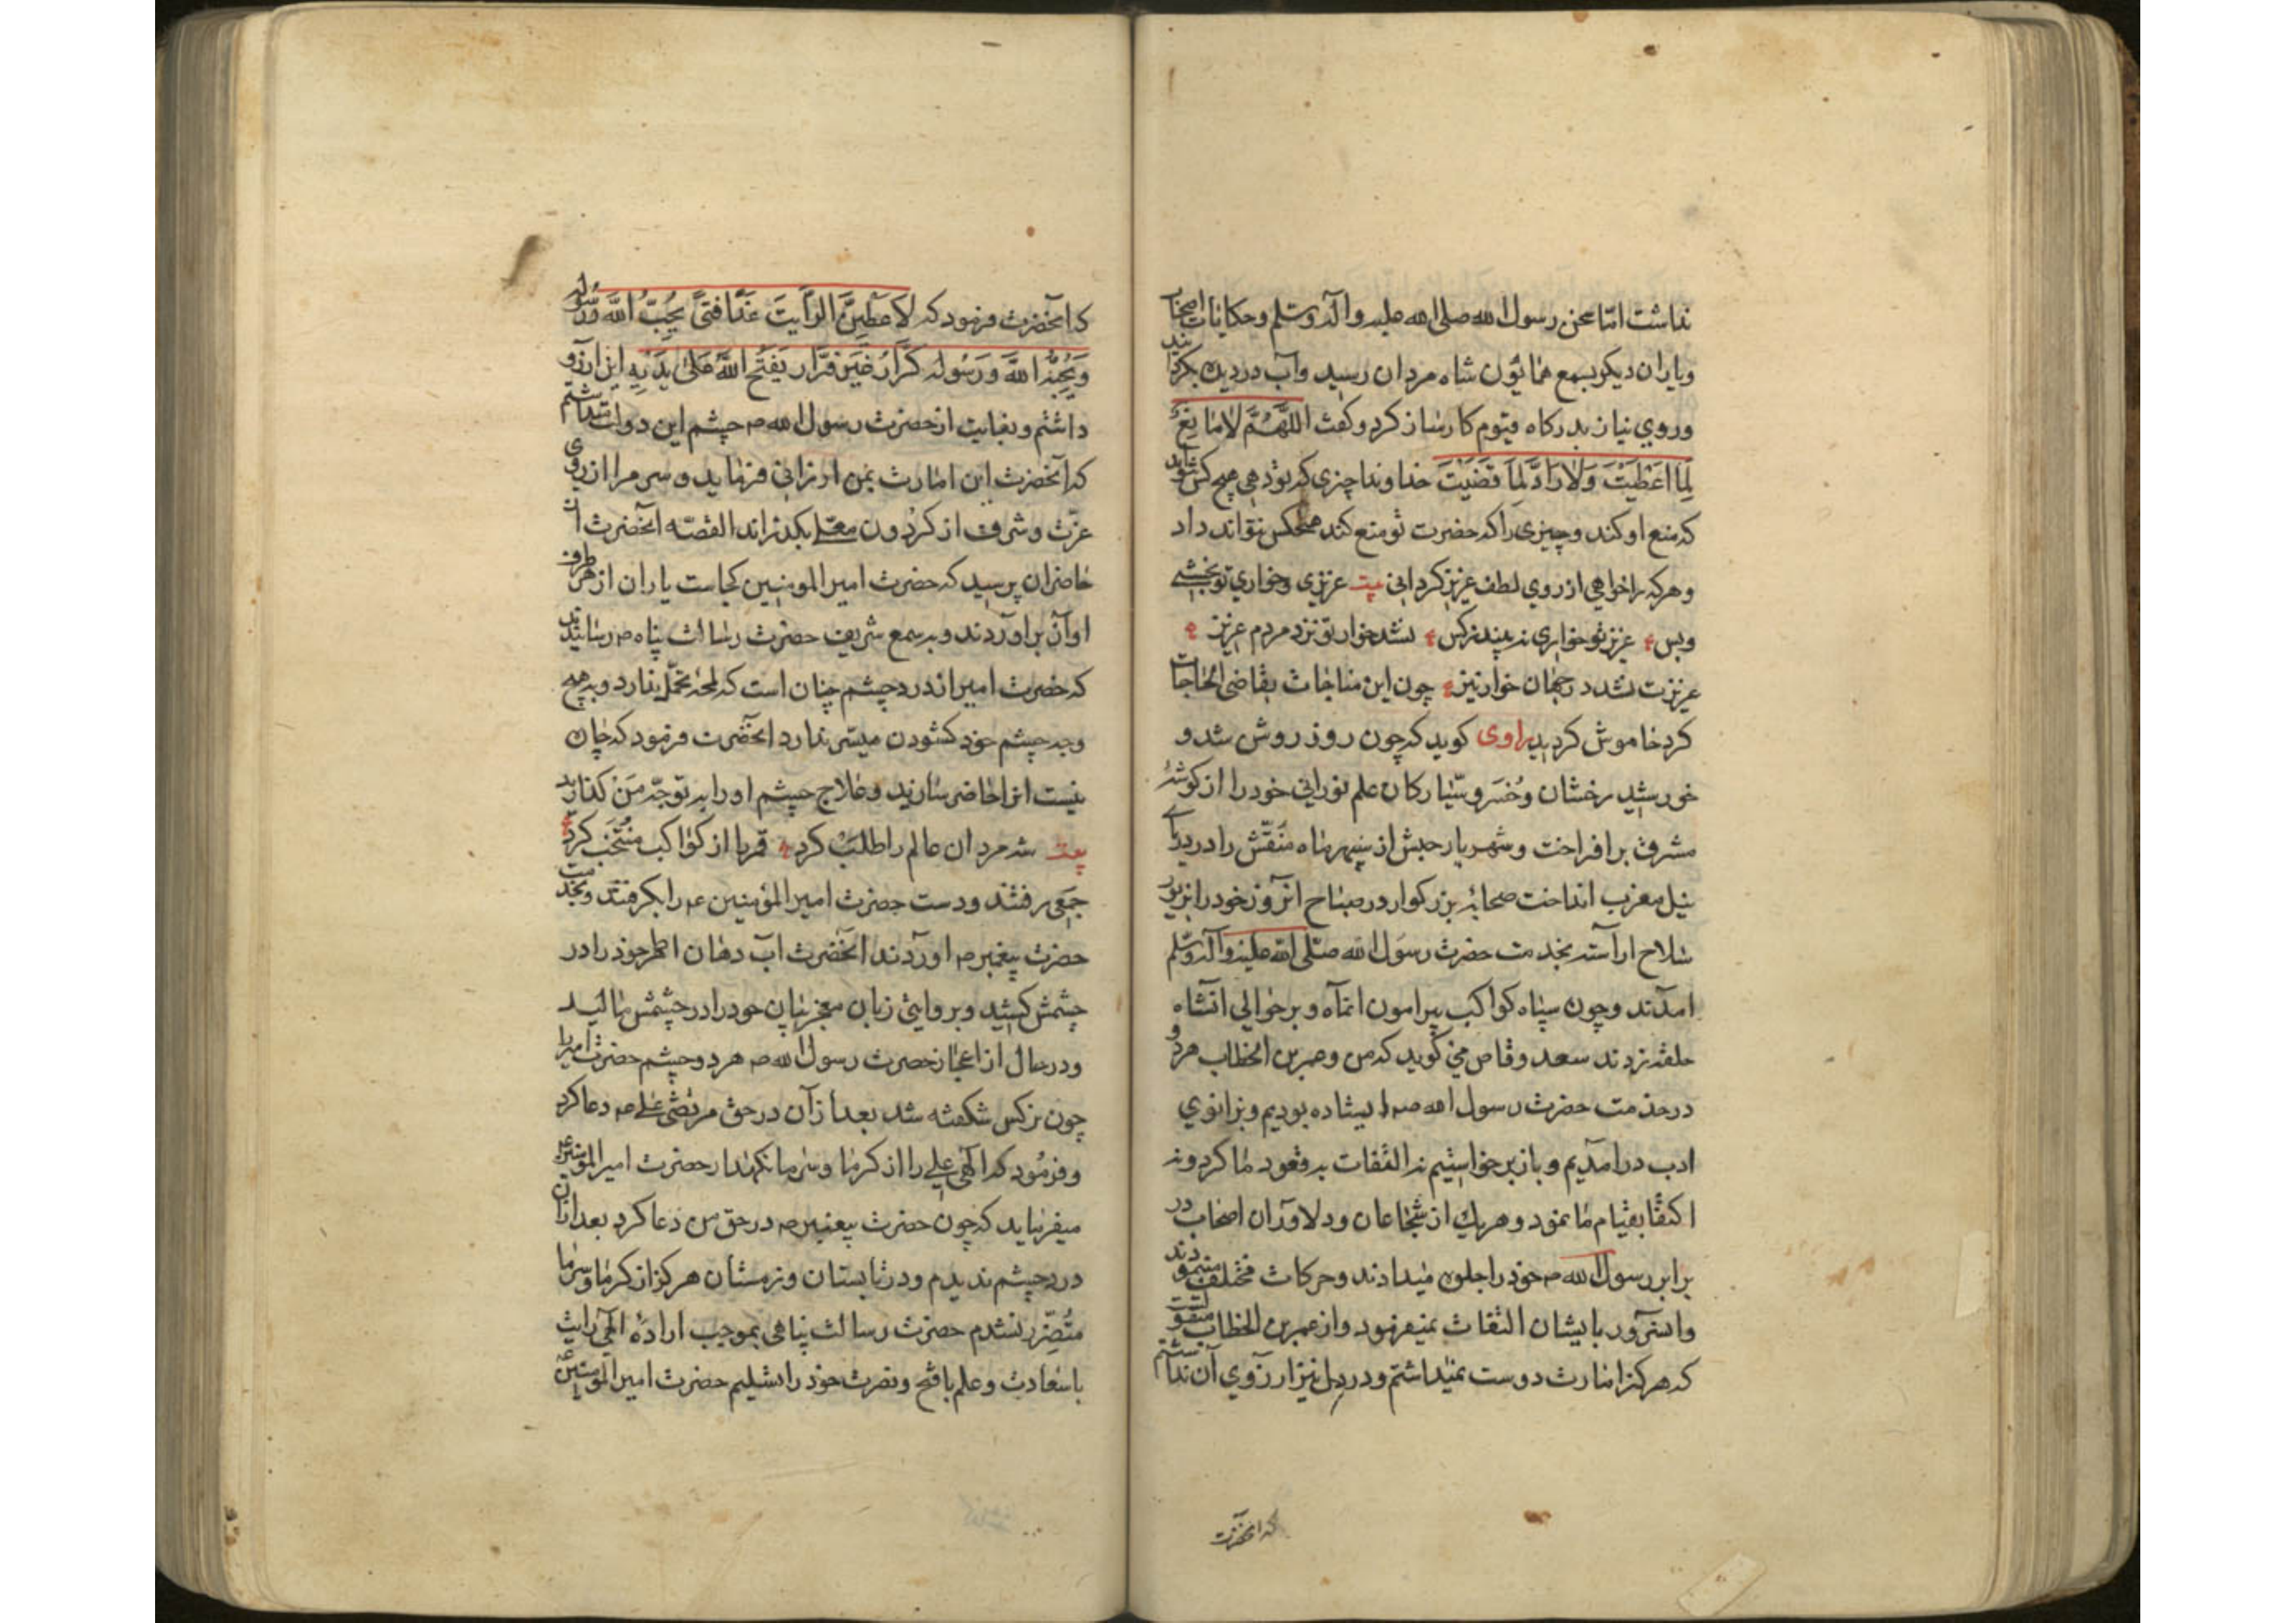 نداشت امّا سخن رسول الله صلی الله علیه وآله وسلم وحکایات اصحاب
ویاران دیکر بسمع همایون شاه مردان رسید وآب در دیده بکردانید
وروی نیاز بدرکاه قیوم کارساز کرد وکفت اللَّهُمَّ لَامَانِعَ
لِمَا اَعْطَیْتَ وَلَارَادَّ لِمَا قَضَیْتَ خداوندا چیزی که تو دهی هیچ کس نتواند
که منع او کند وچیزی را که حضرت تو منع کند هیچکس نتواند داد
وهرکه را خواهی از روی لطف عزیز کردانی بیت عزیزی وخواری تو بخشی
وبس عزیز تو خواری نه بیند زکس نشد خوار تو نزد مردم عزیز
عزیزت نشد در جهان خوار نیز چون این مناجات بقاضی الحاجات
کرد خاموش کردید راوی کوید که چون روز روشن شد و
خورشید رخشان وخسرو سیّارکان علم نورانی خود را از کوشهٔ
مشرق برافراخت وشهریار حبش از سپهر ماه منقش را در دریای
نیل مغرب انداخت صحابهٔ بزرکوار در صباح انروز خود را بزیور
سلاح اراسته بخدمت حضرت رسول الله صلّی الله علیه وآله وسلم
امدند وچون سپاه کواکب پیرامون انماه وبر حوالی انشاه
حلقه زدند سعد وقاص می کوید که من وعمر بن الخطاب هردو
در خدمت حضرت رسول الله ص ایستاده بودیم وبزانوی
ادب درامدیم وباز برخواستیم نه التفات به قعود ما کرد ونه
اکتفا بقیام ما نمود وهریك از شجاعان ودلاوران اصحاب در
برابر رسول الله ص خود را جلوه میدادند وحرکات مختلف مینمودند
وانسرور بایشان التفات نمیفرمود واز عمر بن الخطاب منقولست
که هرکز امارت دوست نمیداشتم ودر دل نیز ارزوی آن نداشتم
که انحضرت
که آنحضرت فرمود که لَاُعْطِیَنَّ الرَّایَتَ غَدًا فَتیً یُحِبُّ اللهَ وَرَسُولَه
وَیُحِبُّهُ اللهَ وَرَسُولَه کَرَّارٌ غَیْرَ فَرَّار یَفْتَحِ اللهُ عَلیٰ یَدَیْهِ این ارزو
داشتم وبغایت از حضرت رسول الله ص چشم این دولت میداشتم
که آنحضرت این امارت بمن ارزانی فرماید وسر مرا از روی
عزّت وشرف از کردون معلّی بکذراند القصّه آنحضرت از
حاضران پرسید که حضرت امیرالمومنین کجاست یاران از هر طرف
اواز براوردند وبه سمع شریف حضرت رسالت پناه ص رسانیدند
که حضرت امیر از درد چشم چنان است که لمحهٔ تحمّل ندارد وبه هیچ
وجه چشم خود کشودن میسّر ندارد انحضرت فرمود که چاره
نیست او را حاضر سازید وعلاج چشم او را به توجّه من کذارید
بیت شه مردان عالم را طلب کرد قمر را از کواکب منتخب کرد
جمعی رفتند ودست حضرت امیرالمؤمنین ع را بکرفتند وبخدمت
حضرت پیغمبر ص اوردند انحضرت آب دهان اطهر خود را در
چشمش کشید وبروایتی زبان معجز بیان خود را در چشمش مالید
ودر حال از اعجاز حضرت رسول الله ص هر دو چشم حضرت امیر را
چون نرکس شکفته شد بعد از آن در حق مرتضی علی ع دعا کرد
وفرمود که الهی علی را از کرما وسرما نکهدار حضرت امیرالمومنین ع
میفرماید که چون حضرت پیغمبر ص در حق من دعا کرد بعد ازان
درد چشم ندیدم ودر تابستان وزمستان هرکز از کرما وسرما
متضرّر نشدم حضرت رسالت پناهی بموجب ارادهٔ الهی رایت
باسعادت وعلم بافتح ونصرت خود را تسلیم حضرت امیرالمومنین ع